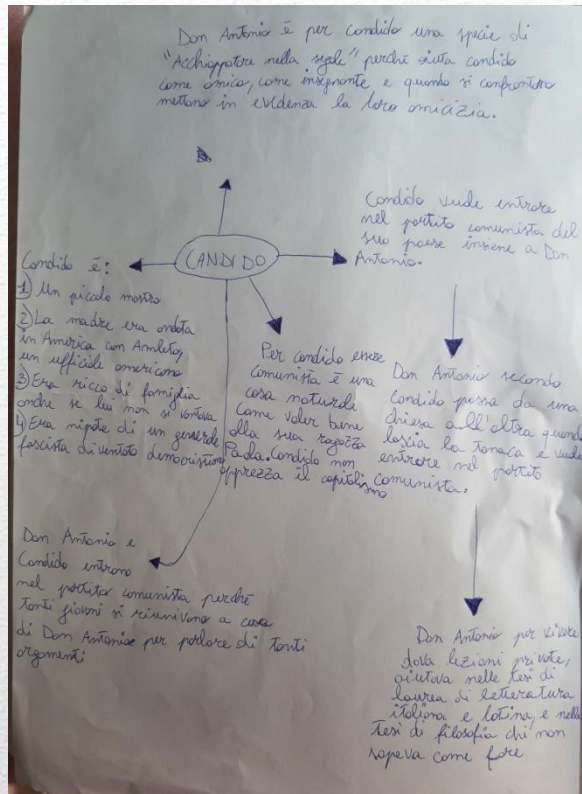 Don Antonio è per Candido una specie di
"Acchiappatore nella segale" perchè aiuta candido
come amico, come insegnante, e quando si confrontano
mettono in evidenza la loro amicizia.
CANDIDO
Candido vuole entrare
nel partito comunista del
suo paese insieme a Don
Antonio.
Candido è:
1) Un piccolo mostro
2) La madre era andata
in America con Amleto,
un ufficiale americano
3) Era ricco di famiglia
anche se lui non si vantava
4) Era nipote di un generale
fascista diventato democristiano
Per candido essere
comunista è una
cosa naturale
come voler bene
alla sua ragazza
Paola. Candido non
apprezza il capitalismo
Don Antonio secondo
Candido passa da una
chiesa all'altra quando
lascia la tonaca e vuole
entrare nel partito
comunista.
Don Antonio e
Candido entrano
nel partito comunista perchè
tanti giovani si riunivano a casa
di Don Antonio per parlare di tanti
argomenti
Don Antonio per vivere
dava lezioni private,
aiutava nelle tesi di
laurea di letteratura
italiana e latina, e nelle
tesi di filosofia chi non
sapeva come fare